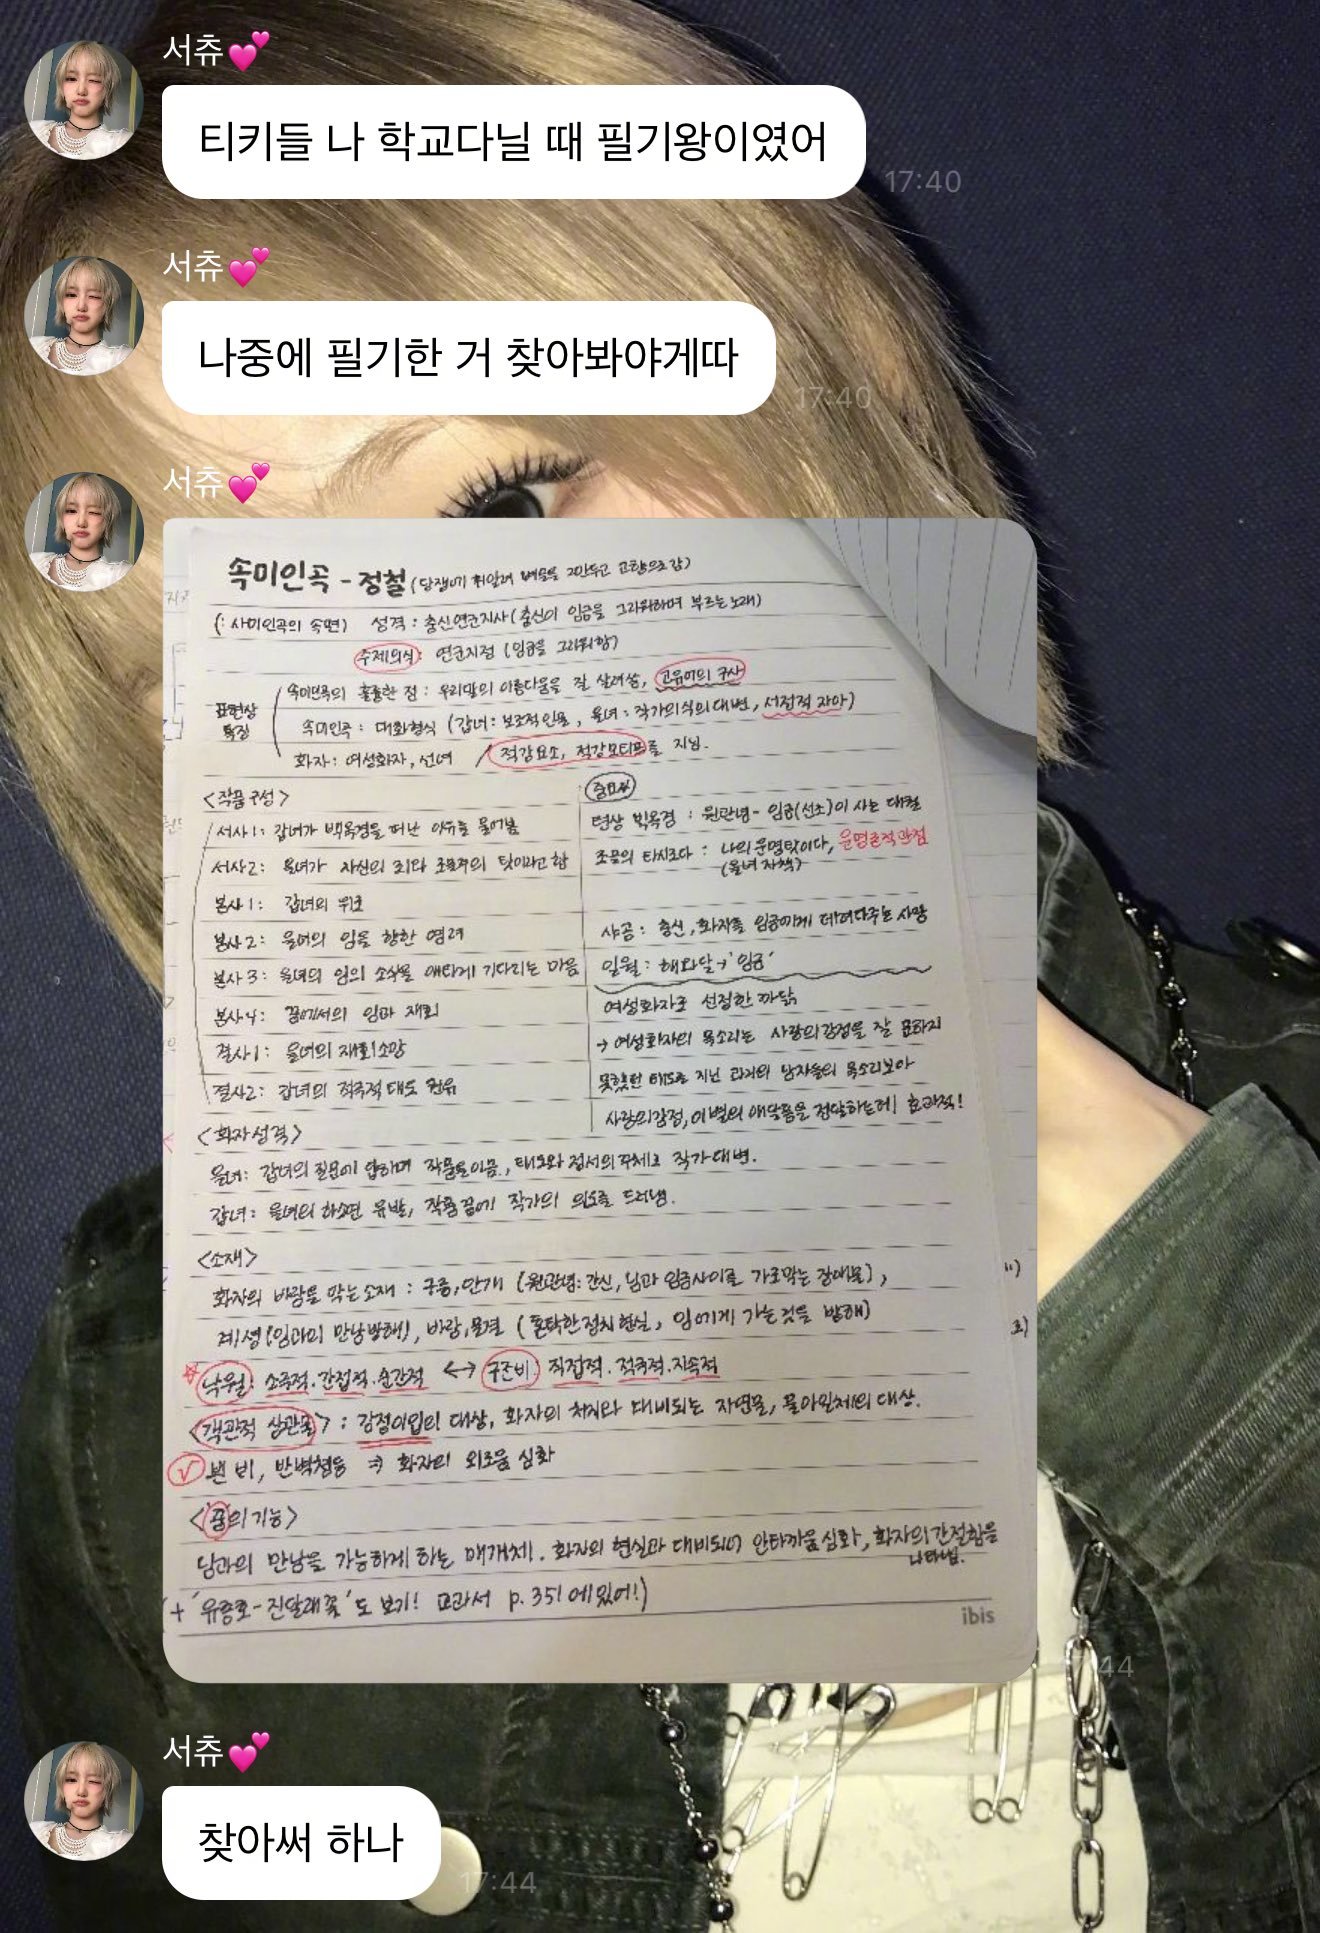 서츄💕
티키들 나 학교다닐 때 필기왕이였어
17:40
서츄💕
나중에 필기한 거 찾아봐야게따
17:40
서츄💕
속미인곡 - 정철 (당쟁에 휘말려 벼슬을 그만두고 고향으로 감)
(: 사미인곡의 속편) 성격 : 충신연군지사 (충신이 임금을 그리워하며 부르는 노래)
주제의식 : 연군지정 (임금을 그리워함)
표현상 특징
속미인곡의 훌륭한 점 : 우리말의 아름다움을 잘 살려씀, 고유어의 구사
속미인곡 : 대화형식 (갑녀 : 보조적인물, 을녀 : 작가의식의 대변, 서정적 자아)
화자 : 여성화자, 선녀 / 적강요소, 적강모티프를 지님.
<작품구성>
서사1 : 갑녀가 백옥경을 떠난 이유를 물어봄
서사2 : 을녀가 자신의 죄와 조물주의 탓이라고 함
본사1 : 갑녀의 위로
본사2 : 을녀의 임을 향한 염려
본사3 : 을녀의 임의 소식을 애타게 기다리는 마음
본사4 : 꿈에서의 임과 재회
결사1 : 을녀의 재회소망
결사2 : 갑녀의 적극적 태도 권유
중요
텬샹 백옥경 : 원관념 - 임금(선조)이 사는 대궐
조물의 타시로다 : 나의 운명탓이다, 운명론적 관점
(을녀 자책)
샤공 : 충신, 화자를 임금에게 데려다주는 사람
일월 : 해와달 → '임금'
여성화자로 선정한 까닭
→ 여성화자의 목소리는 사랑의 감정을 잘 표하지
못했던 태도를 지닌 과거의 남자들의 목소리보아
사랑의 감정, 이별의 애달픔을 전달하는데 효과적!
<화자성격>
을녀 : 갑녀의 질문에 답하며 작품을 이끔, 태도와 정서의 주체로 작가 대변.
갑녀 : 을녀의 하소연 유발, 작품 끝에 작가의 의도를 드러냄.
<소재>
화자의 바람을 막는 소재 : 구름, 안개 (원관념 : 간신, 님과 임금사이를 가로막는 장애물),
계성 (임과의 만남방해), 바람, 물결 (혼탁한 정치현실, 임에게 가는것을 방해)
낙월 : 소극적. 간접적. 순간적 ↔ 구즌비 : 직접적. 적극적. 지속적
<객관적 상관물> : 감정이입의 대상, 화자의 처지와 대비되는 자연물, 물아일체의 대상.
√ 뷘 비, 반벽청등 ⇒ 화자의 외로움 심화
<꿈의 기능>
님과의 만남을 가능하게 하는 매개체. 화자의 현실과 대비되어 안타까움 심화, 화자의 간절함을 나타냄.
(+ '유응호 - 진달래꽃'도 보기! 교과서 p.351 에있어!)
ibis
17:44
서츄💕
찾아써 하나
17:44